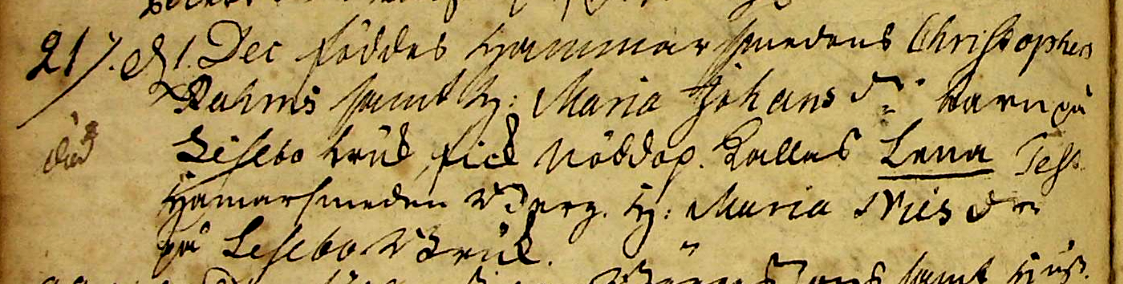 217. d. 1. Dec föddes Hammarsmedens Christophers
Rahms samt H: Maria Johansdr barn på
död Lesebo bruk, fick nöddop. Kallas Lena Test.
Hamarsmeden Berg. H: Maria Nilsdr
på Lesebo Bruk.
samt Hust.